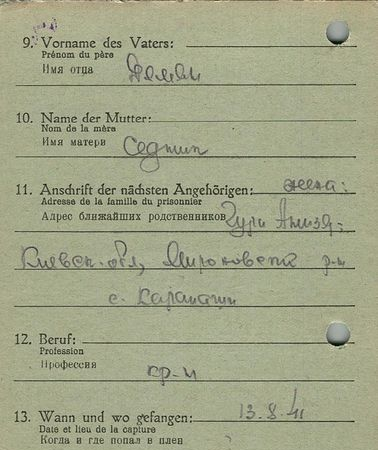 9. Vorname des Vaters:
Prénom du père
Имя отца Демян
10. Name der Mutter:
Nom de la mère
Имя матери
11. Anschrift der nächsten Angehörigen: жена:
Adresse de la famille du prisonnier
Адрес ближайших родственников
Киевск. обл, Мироновск р-н
с. Карапаши
12. Beruf:
Profession
Профессия кр-н
13. Wann und wo gefangen: 13.8.41
Date et lieu de la capture
Когда и где попал в плен